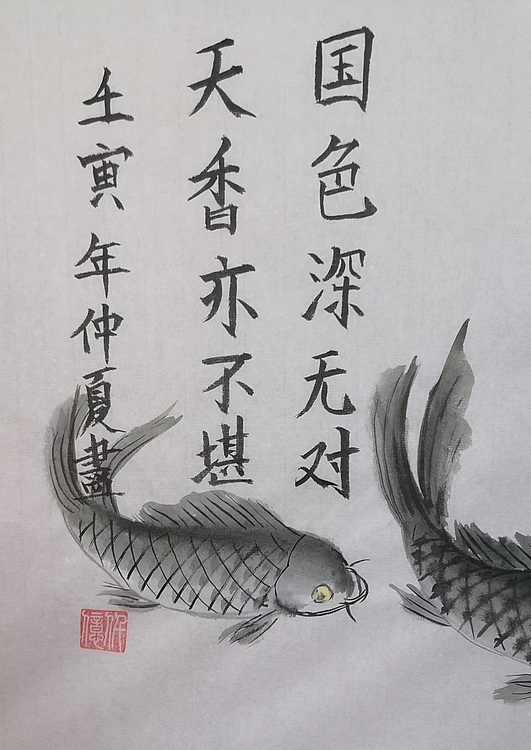 国色深无对
天香亦不堪
壬寅年仲夏畫
許億